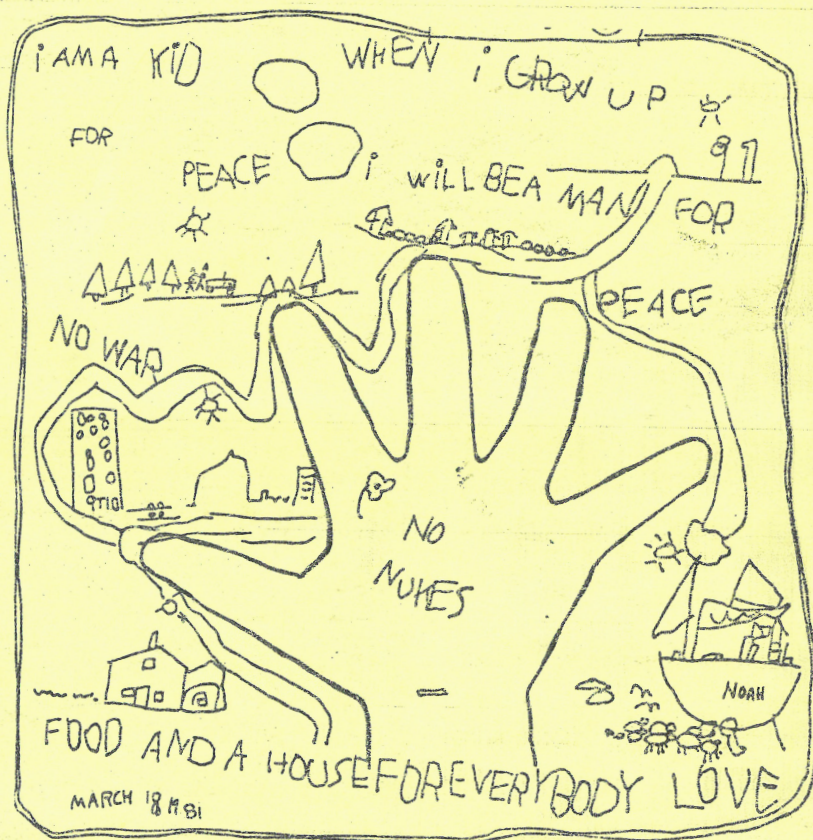 i AM A KiD
WHEN i GROW UP
FOR
PEACE
i WiLL BE A MAN FOR
PEACE
NO WAR
NO
NUKES
NOAH
FOOD AND A HOUSE FOR EVERYBODY LOVE
MARCH 18 1981